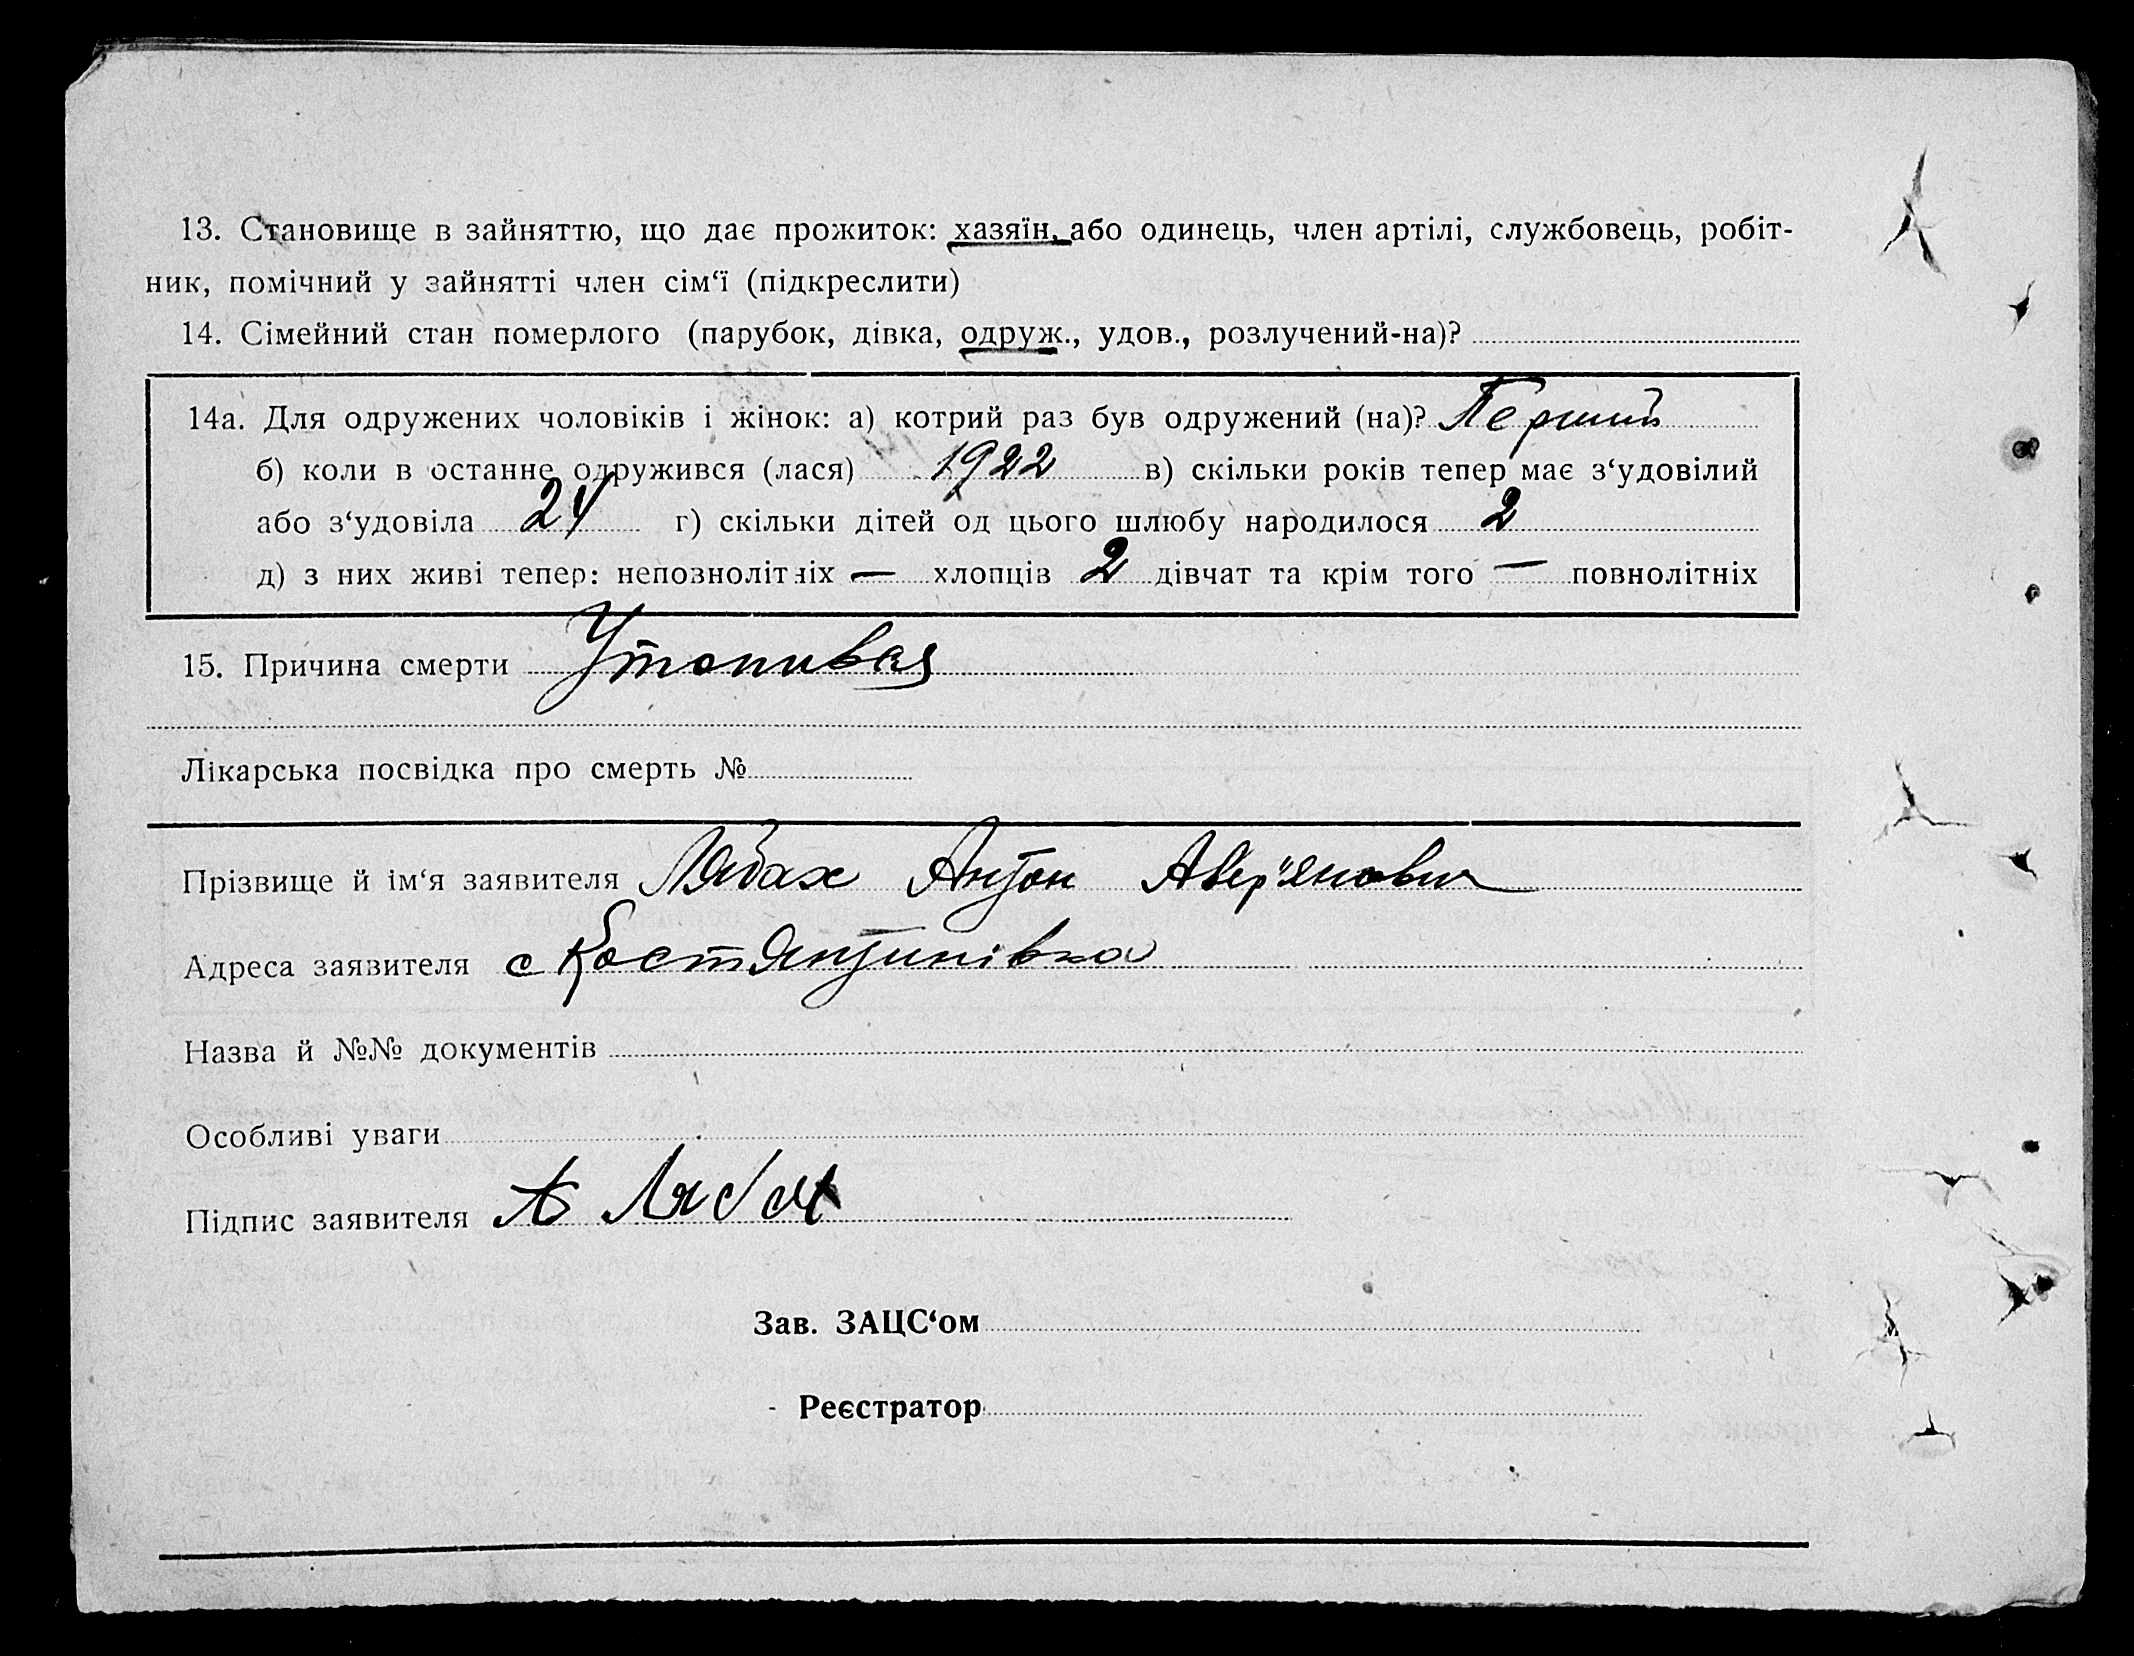 13. Становище в зайняттю, що дає прожиток: хазяїн, або одинець, член артілі, службовець, робіт-
ник, помічний у зайнятті член сім‘ї (підкреслити)
14. Сімейний стан померлого (парубок, дівка, одруж., удов., розлучений-на)?
14а. Для одружених чоловіків і жінок: а) котрий раз був одружений (на)? Перший
б) коли в останнє одружився (лася) 1922 в) скільки років тепер має з‘удовілий
або з‘удовіла 24 г) скільки дітей од цього шлюбу народилося 2
д) з них живі тепер: непознолітніх — хлопців 2 дівчат та крім того — повнолітніх
15. Причина смерти Утопивая
Лікарська посвідка про смерть №
Прізвище й ім‘я заявителя Лябах Антон Авер"янович
Адреса заявителя с Костянтинівка
Назва й №№ документів
Особливі уваги
Підпис заявителя А Лябах
Зав. ЗАЦС‘ом
Реєстратор